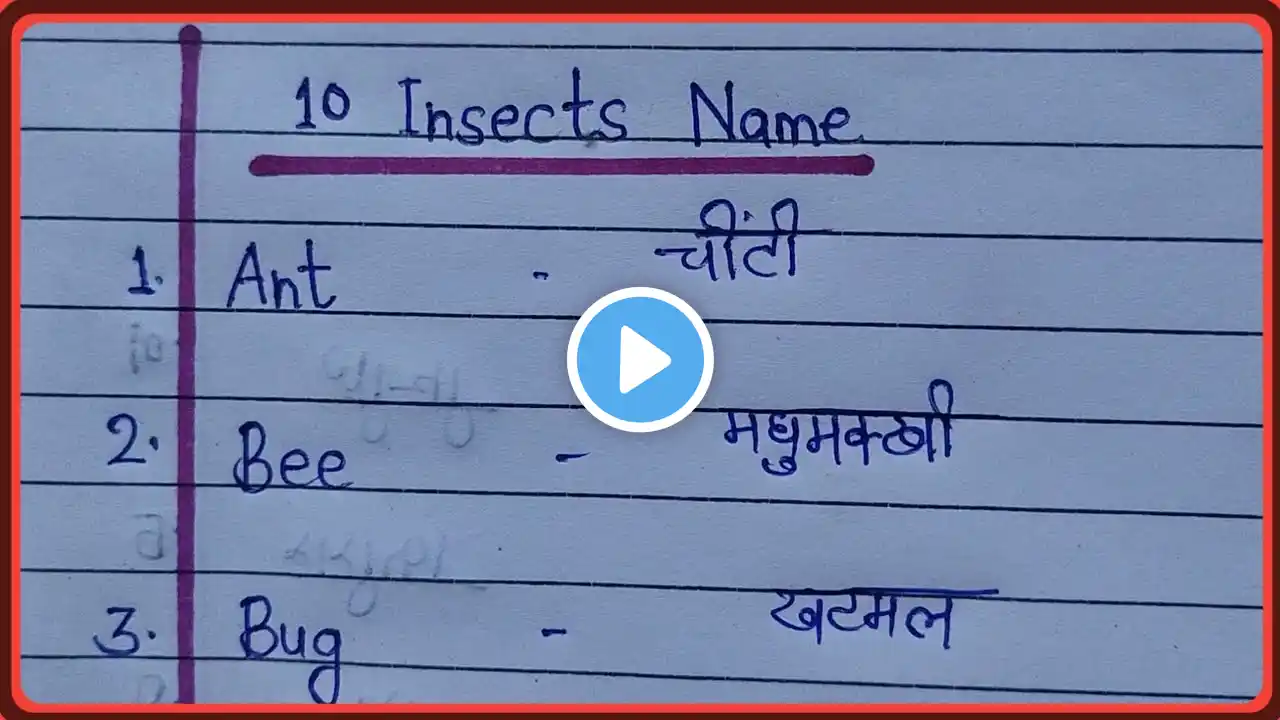 10 Insects Name
1. Ant - चींटी
2. Bee - मधुमक्खी
3. Bug - खटमल